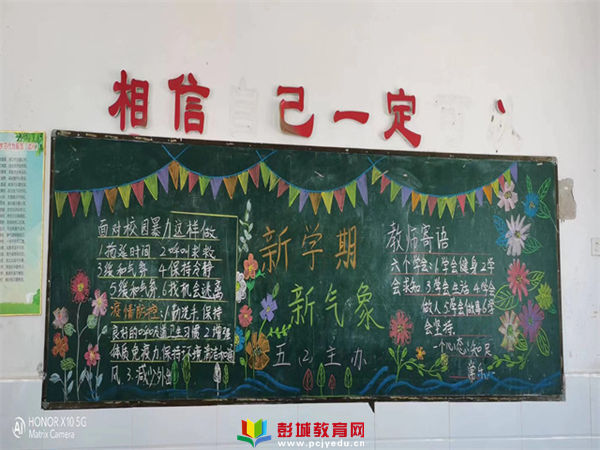 相信 己一定
面对校园暴力这样做
1拖延时间 2呼叫求救
3缓和气氛 4保持冷静
5缓和气氛 6找机会逃离
疫情防控:1勤洗手,保持
良好的呼吸道卫生习惯 2.增强
体质免疫力保持环境清洁和通
风 3.减少外出
新学期
新气象
五.2主办
教师寄语
六个学会:1.学会健身2.学
会求知 3.学会生活 4.学会
做人5.学会做事6学
会坚持.
HONOR X10 5G
Matrix Camera
彭城教育网
www.pcjyedu.cn